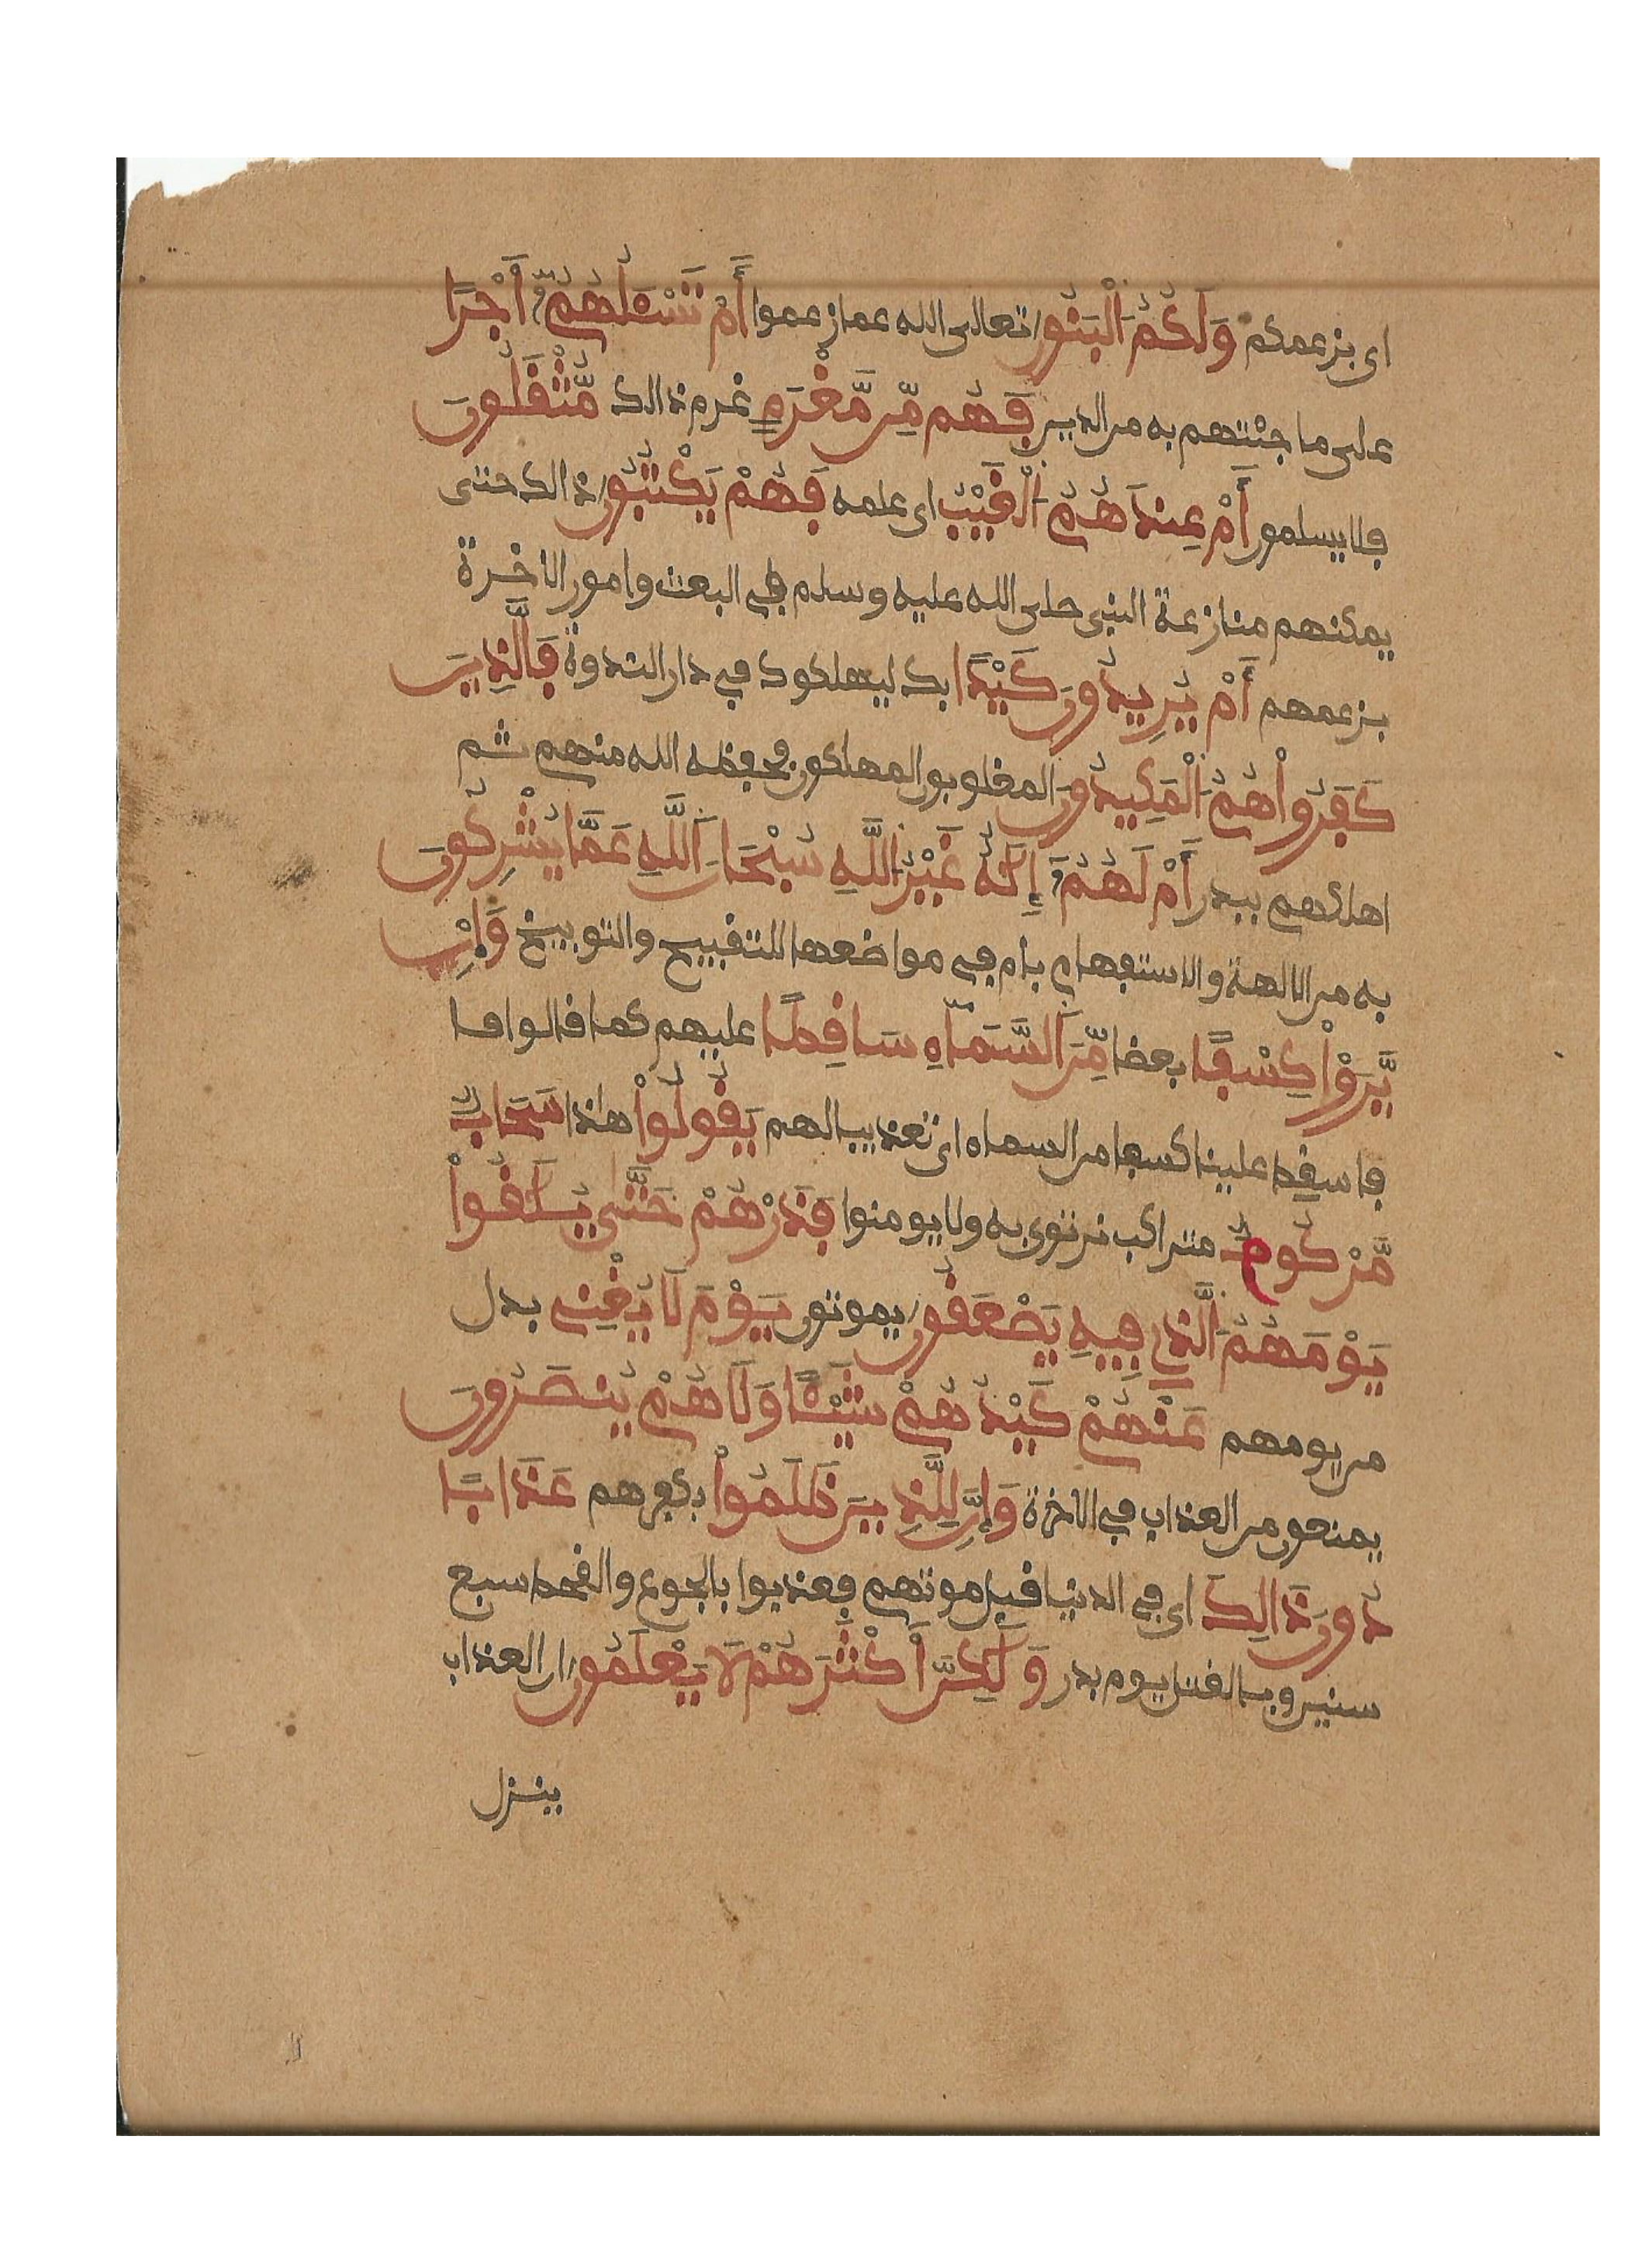 اى بزعمكم وَلَكُمُ اُ۬لْبَنُونَ تعالى الله عما زعموا أَمْ تَسْـَٔلُهُمُۥٓ أَجْرًا
على ما جئتهم به من الدين فَهُم مِّن مَّغْرَمٍ غرم ذالك مُّثْقَلُونَ
فلا يسلمون أَمْ عِندَهُمُ اُ۬لْغَيْبُ اى علمه فَهُمْ يَكْتُبُونَ ذالك حتى
يمكنهم منازعة النبى صلى الله عليه وسلم في البعث وامور الاخرة
بزعمهم أَمْ يُرِيدُونَ كَيْدًا بك ليهلكوك في دار الندوة فَالَّذِينَ
كَفَرُواْ هُمُ اُ۬لْمَكِيدُونَ المغلوبون المهلكون فحفظه الله منهم ثم
اهلكهم ببدر أَمْ لَهُمُۥٓ إِلَٰهٌ غَيْرُ اُ۬للَّهِ سُبْحَانَ اَ۬للَّهِ عَمَّا يُشْرِكُونَ
به من الالهة والاستفهام بام في مواضعها للتقبيح والتوبيخ وَإِنْ
يَّرَوْاْ كِسْفًا بعضا مِّنَ اَ۬لسَّمَآءِ سَاقِطًا عليهم كما قالوا فا
فاسقط علينا كسفا من السماء اى تعذيبا لهم يَقُولُواْ هذا سَحَابٌ
مَّرْكُومٌ متراكب نرتوى به ولا يومنوا فَذَرْهُمْ حَتَّىٰ يُلَٰقُواْ
يَوْمَهُمُ اُ۬لَّذِي فِيهِ يَصْعَقُونَ يموتون يَوْمَ لَا يُغْنِى بدل
من يومهم عَنْهُمْ كَيْدُهُمْ شَيْـًٔا وَلَا هُمْ يُنصَرُونَ
يمنعون من العذاب في الاخرة وَإِنَّ لِلَّذِينَ ظَلَمُواْ بكفرهم عَذَابًا
دُونَ ذَالِكَ اى في الدنيا قبل موتهم فعذبوا بالجوع والقحط سبع
سنين وبالقتل يوم بدر وَلَٰكِنَّ أَكْثَرَهُمْ لَا يَعْلَمُونَ ان العذاب
ينزل